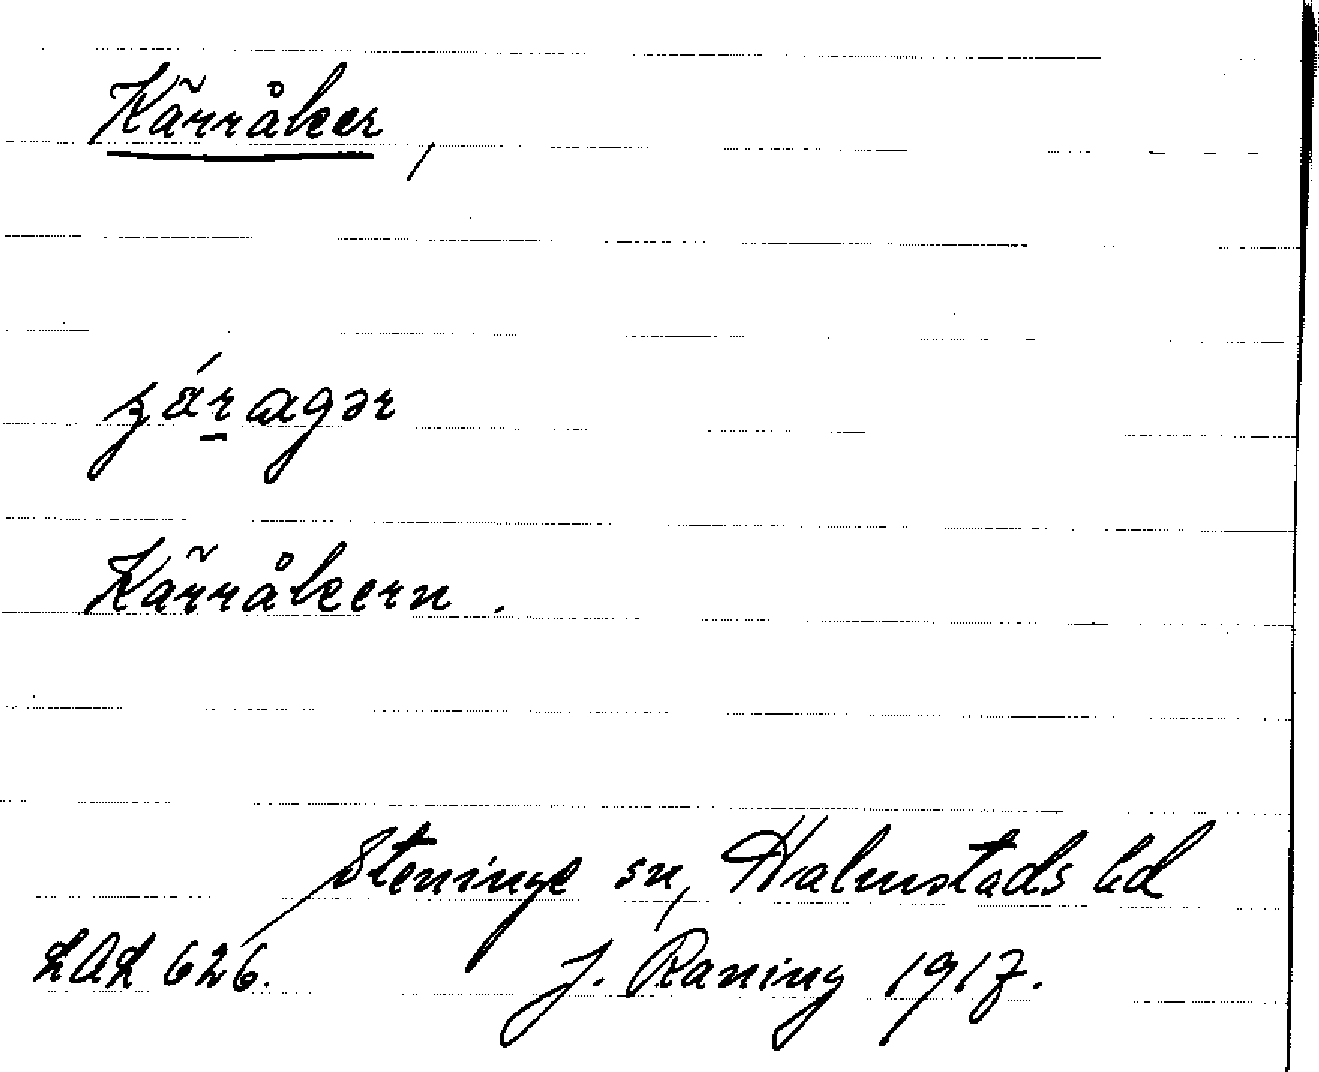 Kärråker,
Kärråkern.
Steninge sn, Halmstads hd
LAL 626. J. Raning 1917.